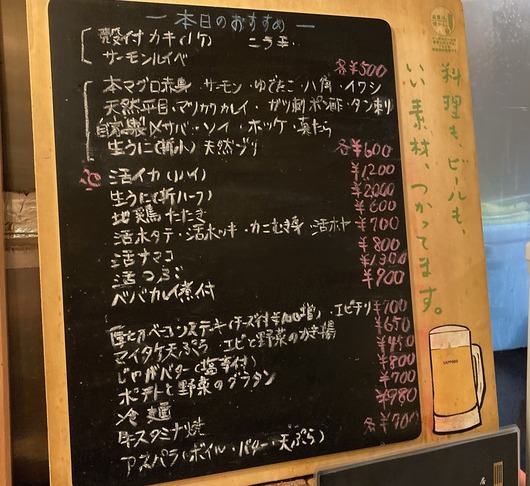 本日のおすすめ
殻付カキ(1ケ)
サーモンルイベ
各¥500
本マグロ赤身・サーモン・ゆでたこ・八角・イワシ
天然平目・マツカワカレイ・ガツ刺ポン酢・タン刺
自家製〆サバ・ソイ・ホッケ・真たら
生うに(折小) 天然ブリ 各¥600
活イカ(1パイ) ¥1200
生うに(折ハーフ) ¥2000
地鶏たたき ¥600
活ホタテ・活ホッキ・カニむき身・活ホヤ ¥700
活ナマコ ¥800
活つぶ ¥1300
ババカレイ煮付 ¥900
厚切ベーコンステーキ(チーズ付¥100増)、エビチリ ¥700
マイタケ天ぷら・エビと野菜のかき揚 ¥650
じゃがバター(塩辛付)
ポテトと野菜のグラタン ¥800
冷麺 ¥700
牛スタミナ焼 ¥980
アスパラ(ボイル・バター・天ぷら) 各¥700
料理も、ビールも、
いい素材、つかってます。
SAPPORO